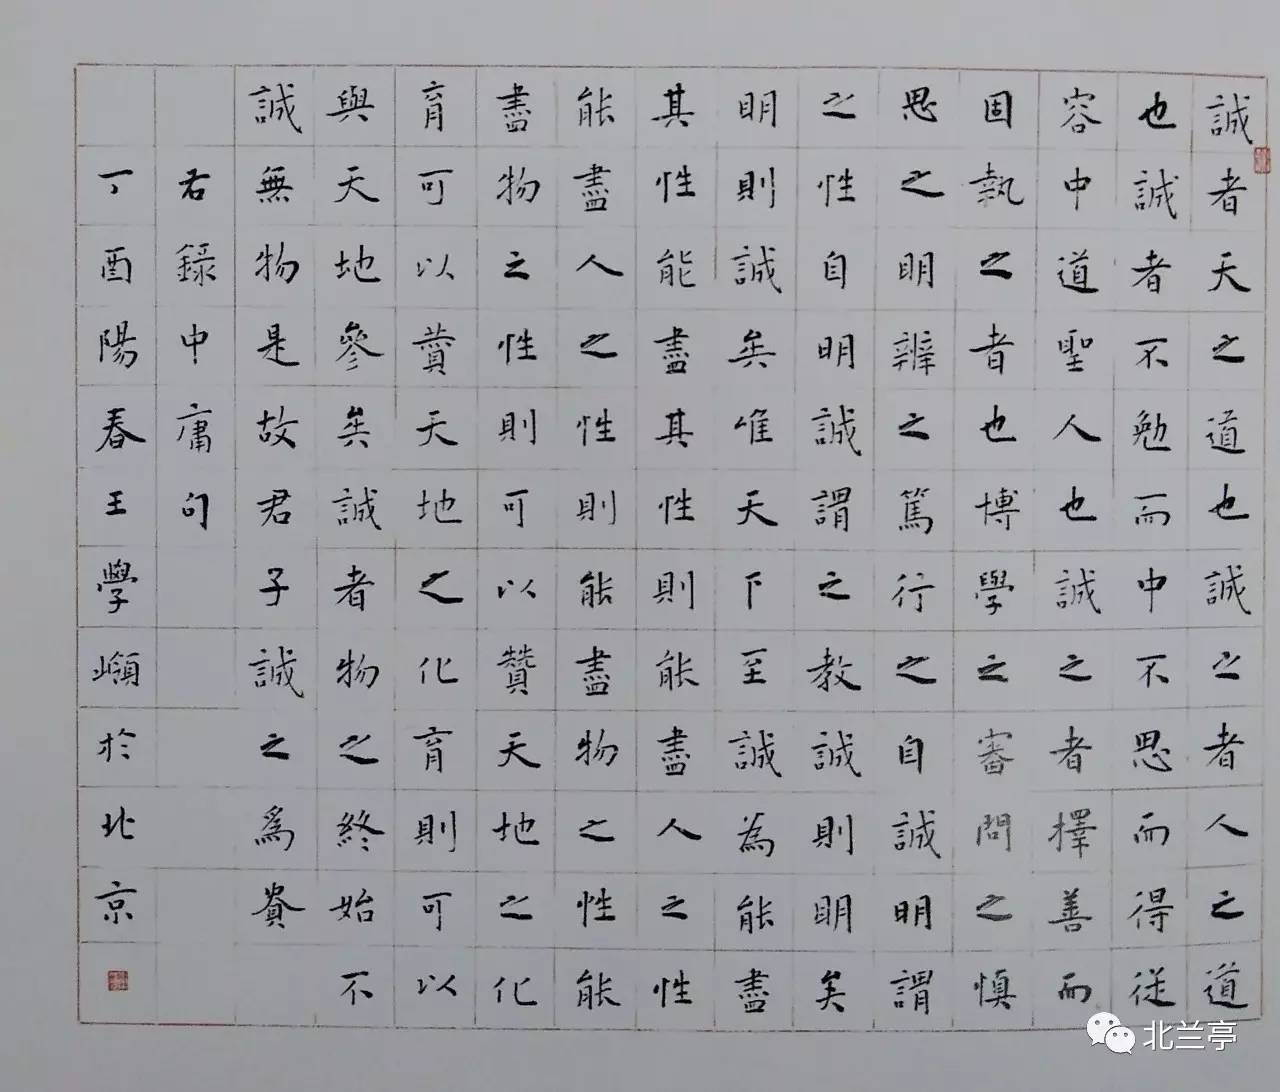 誠者天之道也誠之者人之道
也誠者不勉而中不思而得從
容中道聖人也誠之者擇善而
固執之者也博學之審問之慎
思之明辨之篤行之自誠明謂
之性自明誠謂之教誠則明矣
明則誠矣唯天下至誠為能盡
其性能盡其性則能盡人之性
能盡人之性則能盡物之性能
盡物之性則可以贊天地之化
育可以贊天地之化育則可以
與天地參矣誠者物之終始不
誠無物是故君子誠之爲貴
右錄中庸句
丁酉陽春王學嶺於北京
北兰亭